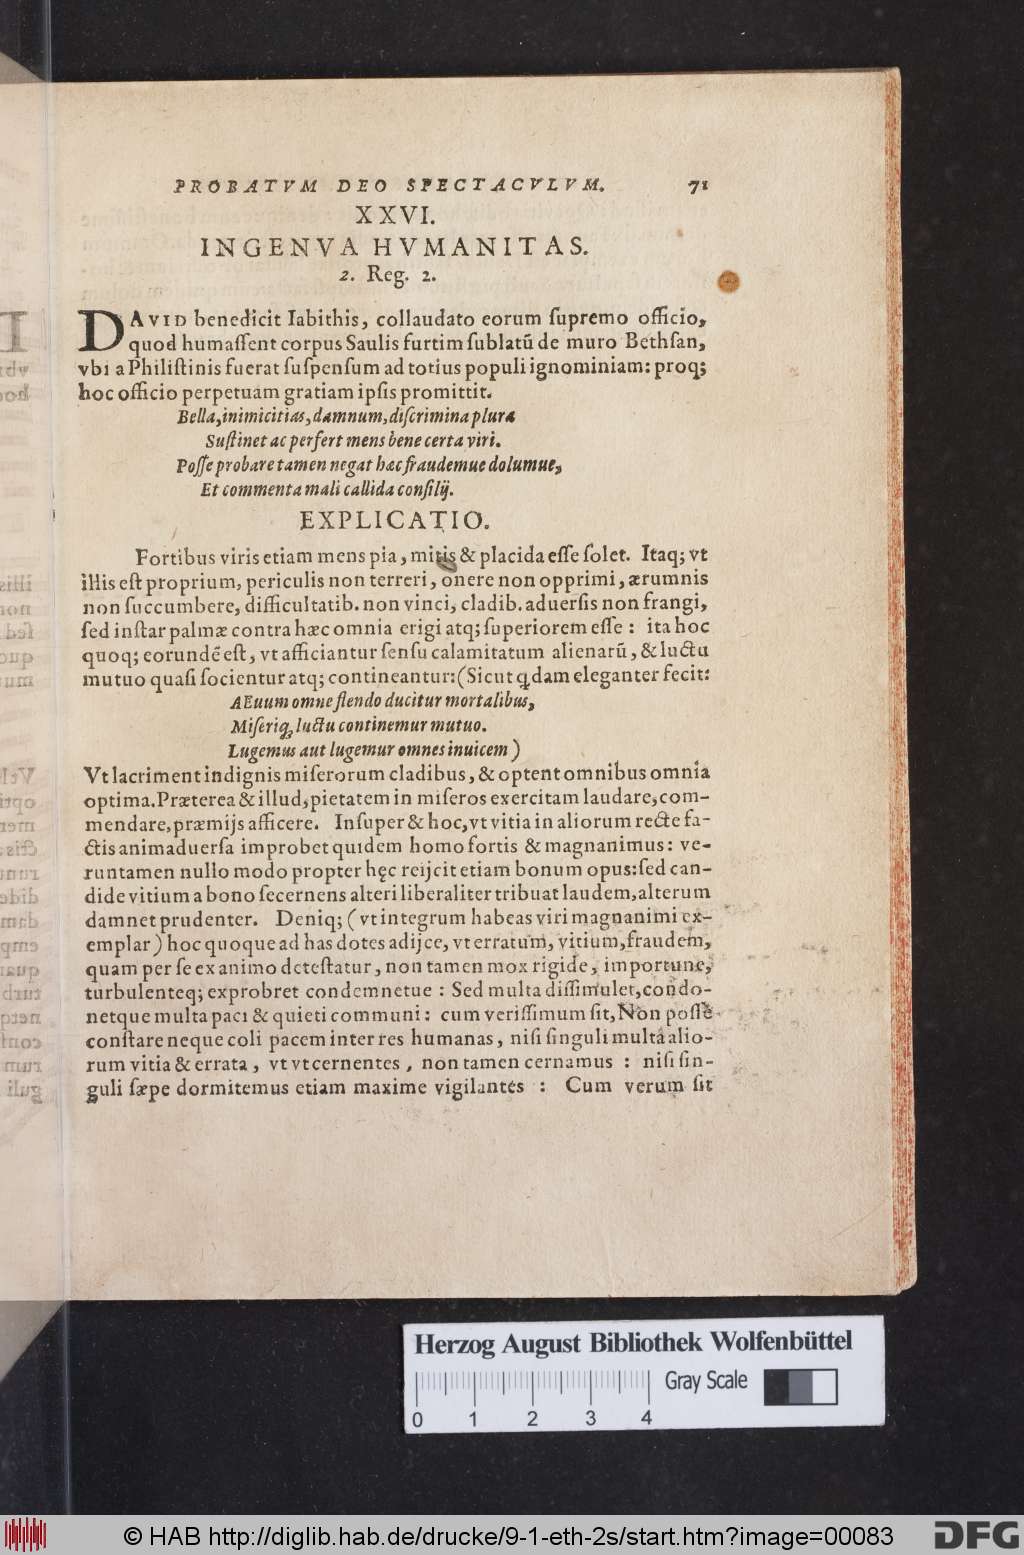 PROBATVM DEO SPECTACVLVM. 71
XXVI.
INGENVA HVMANITAS.
2. Reg. 2.
DAVID benedicit Iabithis, collaudato eorum ſupremo officio,
quod humaſſent corpus Saulis furtim ſublatū de muro Bethſan,
vbi a Philiſtinis fuerat ſuſpenſum ad totius populi ignominiam: proq;
hoc officio perpetuam gratiam ipſis promittit.
Bella, inimicitias, damnum, diſcrimina plura
Suſtinet ac perfert mens bene certa viri.
Poſſe probare tamen negat hæc fraudemue dolumue,
Et commenta mali callida conſilij.
EXPLICATIO.
Fortibus viris etiam mens pia, mitis & placida eſſe ſolet. Itaq; vt
illis eſt proprium, periculis non terreri, onere non opprimi, ærumnis
non ſuccumbere, difficultatib. non vinci, cladib. aduerſis non frangi,
ſed inſtar palmæ contra hæc omnia erigi atq; ſuperiorem eſſe: ita hoc
quoq; eorundē eſt, vt afficiantur ſenſu calamitatum alienarū, & luctu
mutuo quaſi ſocientur atq; contineantur: (Sicut qdam eleganter fecit:
AEuum omne flendo ducitur mortalibus,
Miſeriq; luctu continemur mutuo.
Lugemus aut lugemur omnes inuicem)
Vt lacriment indignis miſerorum cladibus, & optent omnibus omnia
optima. Præterea & illud, pietatem in miſeros exercitam laudare, com-
mendare, præmijs afficere. Inſuper & hoc, vt vitia in aliorum recte fa-
ctis animaduerſa improbet quidem homo fortis & magnanimus: ve-
runtamen nullo modo propter hęc reijcit etiam bonum opus: ſed can-
dide vitium a bono ſecernens alteri liberaliter tribuat laudem, alterum
damnet prudenter. Deniq; (vt integrum habeas viri magnanimi ex-
emplar) hoc quoque ad has dotes adijce, vt erratum, vitium, fraudem,
quam per ſe ex animo deteſtatur, non tamen mox rigide, importune,
turbulenteq; exprobret condemnetue: Sed multa diſſimulet, condo-
netque multa paci & quieti communi: cum veriſſimum ſit, Non poſſe
conſtare neque coli pacem inter res humanas, niſi ſinguli multa alio-
rum vitia & errata, vt vt cernentes, non tamen cernamus: niſi ſin-
guli ſæpe dormitemus etiam maxime vigilantes: Cum verum ſit
Herzog August Bibliothek Wolfenbüttel
Gray Scale
0 1 2 3 4
© HAB http://diglib.hab.de/drucke/9-1-eth-2s/start.htm?image=00083
DFG